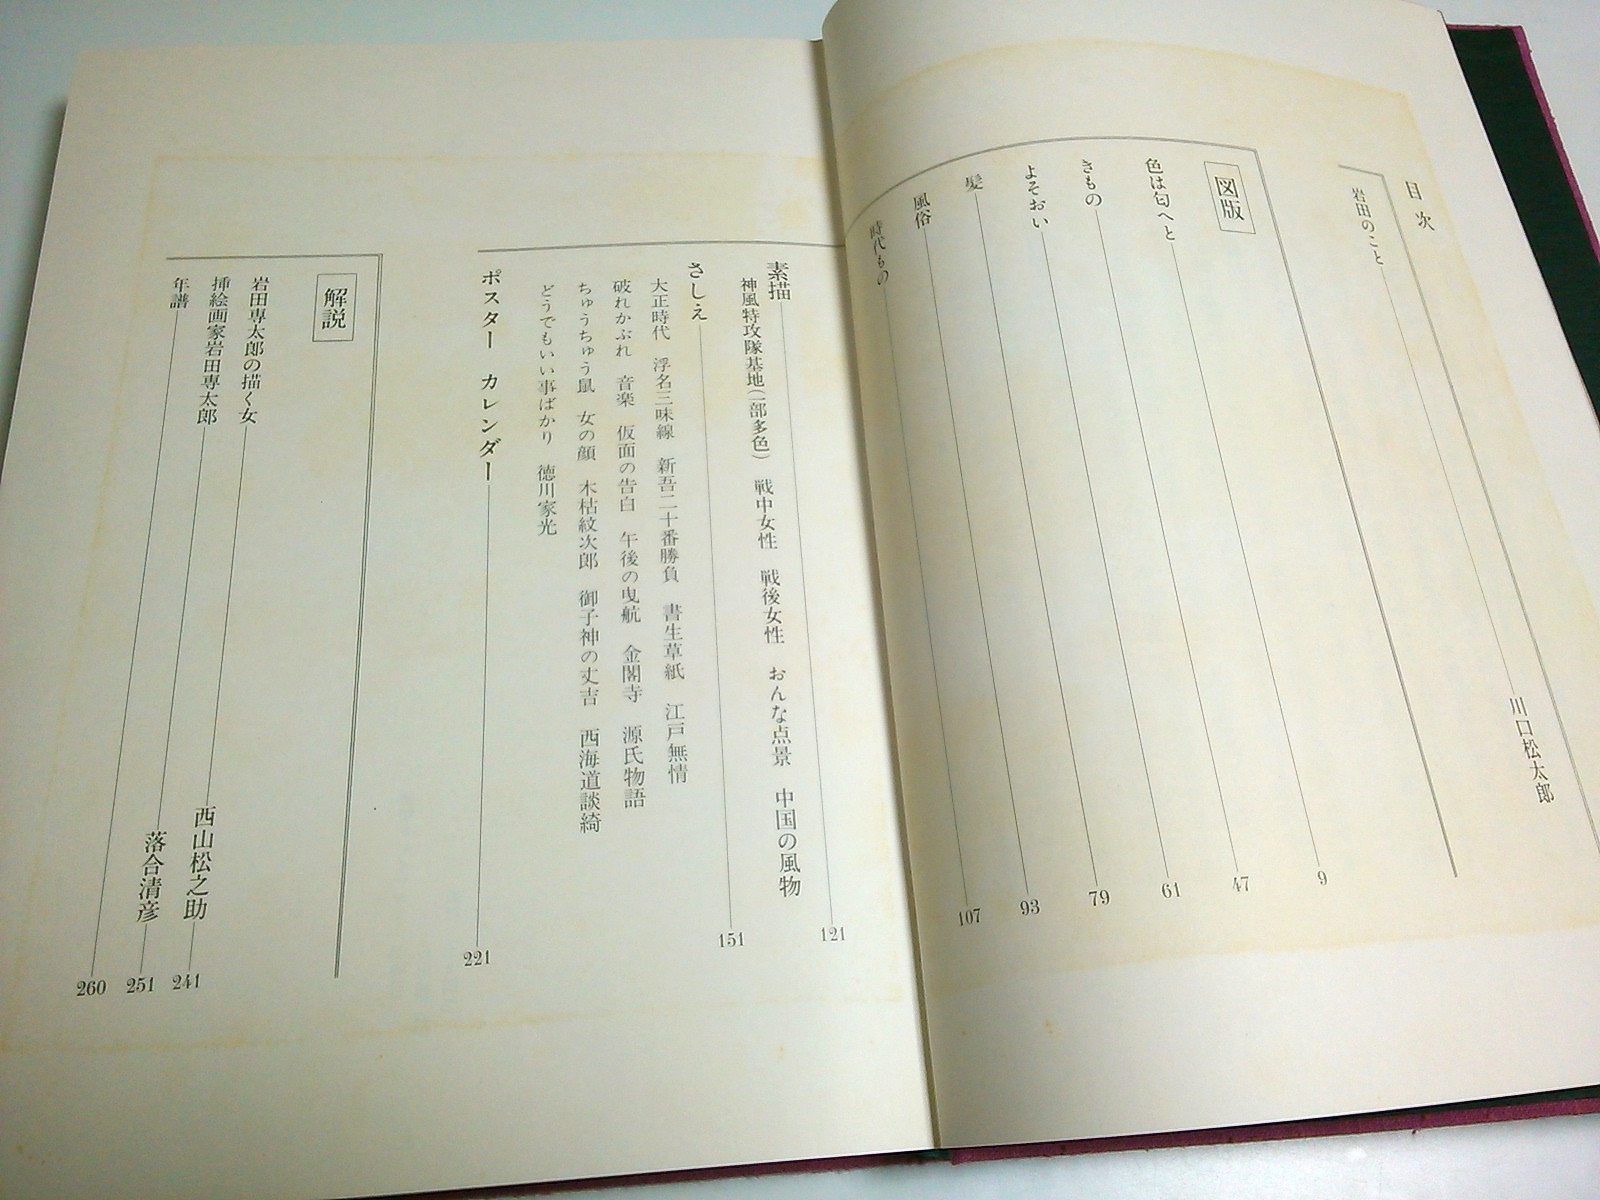 目次
岩田のこと 川口松太郎
図版
色は匂へと 9
きもの 47
よそおい 61
髪 79
風俗 93
時代もの 107
素描 121
神風特攻隊基地(一部多色) 戦中女性 戦後女性 おんな点景 中国の風物
さしえ 151
大正時代 浮名三味線 新吾二十番勝負 書生草紙 江戸無情
破れかぶれ 音楽 仮面の告白 午後の曳航 金閣寺 源氏物語
ちゅうちゅう鼠 女の顔 木枯紋次郎 御子神の丈吉 西海道談綺
どうでもいい事ばかり 徳川家光
ポスター カレンダー 221
解説
岩田専太郎の描く女 西山松之助 241
挿絵画家岩田専太郎 落合清彦 251
年譜 260